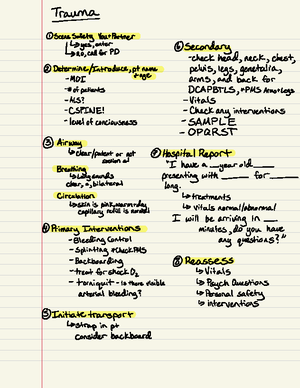 Trauma
① Scene Safety You + Partner
↳ yes, enter
↳ no, call for PD
② Determine/Introduce, pt name + age
- MOI
- # of patients
- ALS?
- CSPINE!
- level of conciousness
③ Airway
↳ clear/patent or not
Breathing
↳ lung sounds
clear, =, bilateral
Circulation
↳ skin is pink, warm, dry
capillary refill is
④ Primary Interventions
- Bleeding Control
- Splinting *Check PMS
- Backboarding
- treat for shock O₂
- torniquit - is there visible
arterial bleeding?
⑤ Initiate transport
↳ strap in pt
consider backboard
⑥ Secondary
- check head, neck, chest,
pelvis, legs, genetalia,
arms, and back for
DCAPBTLS, *PMS Arms + Legs
- Vitals
- Check any interventions
- SAMPLE
- OPQRST
⑦ Hospital Report
"I have a __ year old ____
presenting with ____ for ____
long.
↳ treatments
↳ vitals normal/abnormal
I will be arriving in __
minutes, do you have
any questions?"
⑧ Reassess
↳ Vitals
↳ Psych Questions
↳ Personal safety
↳ interventions